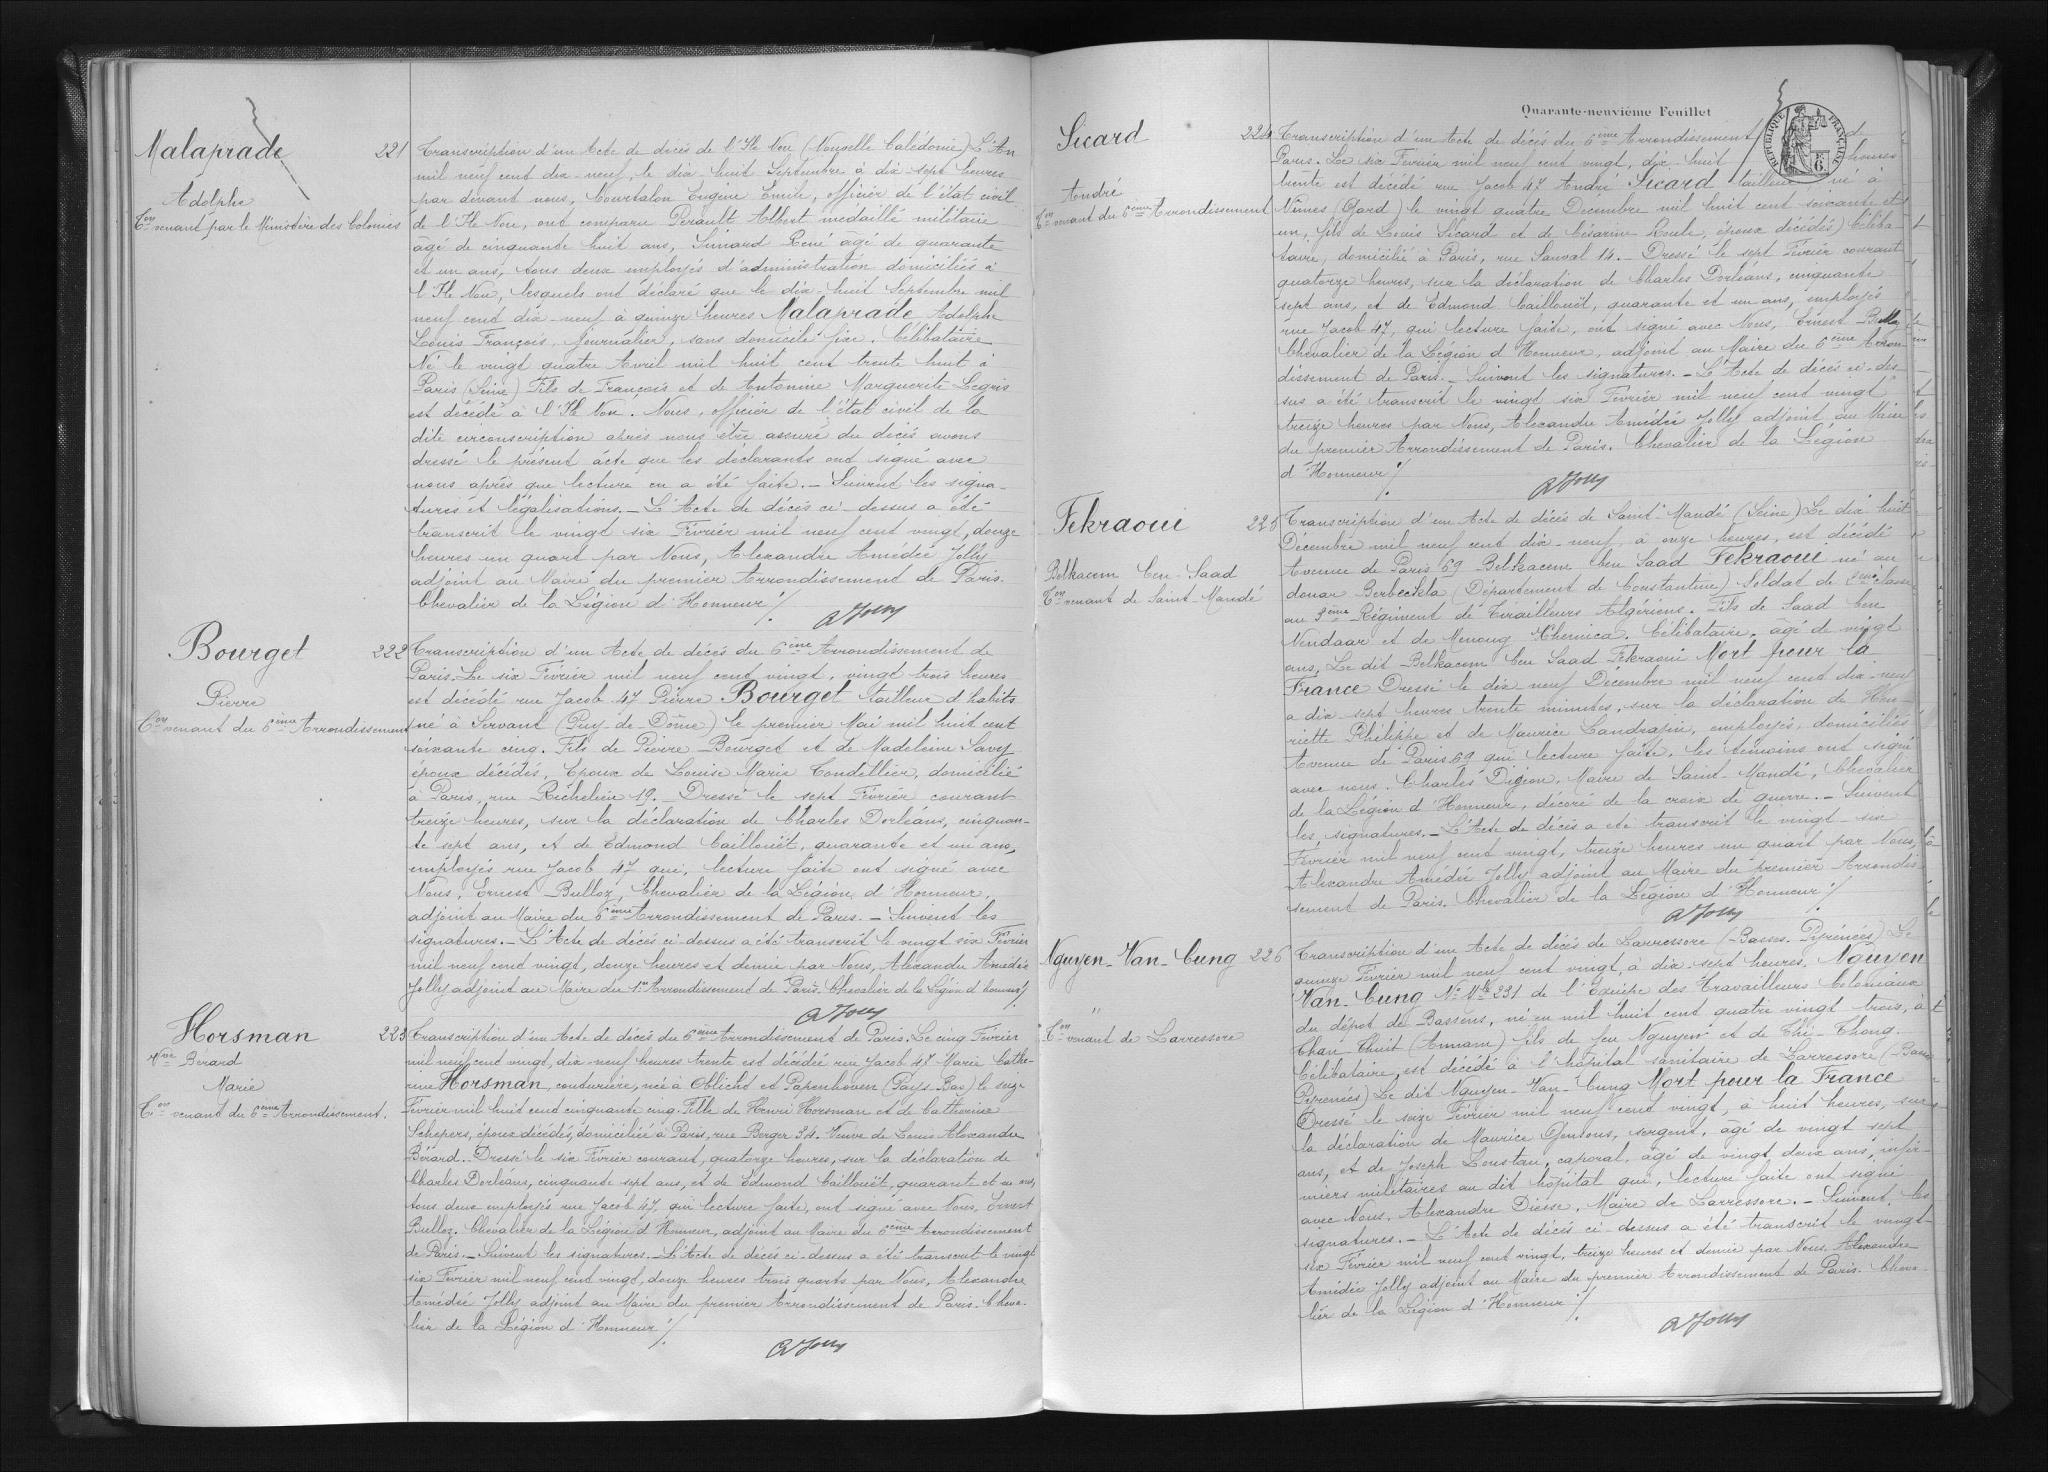 Malaprade
Adolphe
Ton venant par le Ministère des Colonies
221
Transcription d'un Acte de décès de l'Ile Nou (Nouvelle Calédonie) L'An
mil neuf cent dix-neuf, le dix-huit Septembre à dix-sept heures
par devant nous, Courtalon Eugène Emile, officier de l'état civil
de l'Ile Nou, ont comparu Perault Albert médaillé militaire
âgé de cinquante huit ans, Simard René âgé de quarante
et un ans, tous deux employés d'administration domiciliés à
l'Ile Nou, lesquels ont déclaré que le dix-huit Septembre mil
neuf cent dix-neuf à quinze heures Malaprade Adolphe
Louis François, journalier, sans domicile fixe, Célibataire
Né le vingt quatre Avril mil huit cent trente huit à
Paris (Seine) Fils de François et de Antonine Marguerite Legris
est décédé à l'Ile Nou. Nous, officier de l'état civil de la
dite circonscription après nous être assuré du décès avons
dressé le présent acte que les déclarants ont signé avec
nous après que lecture en a été faite. _ Suivent les signa-
tures et légalisations. _ L'Acte de décès ci-dessus a été
transcrit le vingt six Février mil neuf cent vingt, douze
heures un quart par Nous, Alexandre Amédée Jolly
adjoint au Maire du premier Arrondissement de Paris.
Chevalier de la Légion d'Honneur ./.
AJolly
Bourget
Pierre
Ton venant du 6ème Arrondissement
222
Transcription d'un Acte de décès du 6ème Arrondissement de
Paris. Le six Février mil neuf cent vingt, vingt trois heures
est décédé rue Jacob 47 Pierre Bourget tailleur d'habits
né à Servant (Puy-de-Dôme) le premier Mai mil huit cent
soixante cinq. Fils de Pierre Bourget et de Madeleine Savy
époux décédés. Epoux de Louise Marie Condellier, domicilié
à Paris, rue Richelieu 19. _ Dressé le sept Février courant
treize heures, sur la déclaration de Charles Dorléans, cinquan-
te sept ans, et de Edmond Caillouët, quarante et un ans,
employés rue Jacob 47 qui, lecture faite ont signé avec
Nous, Ernest Bulloz, Chevalier de la Légion d'Honneur,
adjoint au Maire du 6ème Arrondissement de Paris. _ Suivent les
signatures. _ L'Acte de décès ci-dessus a été transcrit le vingt six Février
mil neuf cent vingt, douze heures et demie par Nous, Alexandre Amédée
Jolly adjoint au Maire du 1er Arrondissement de Paris. Chevalier de la Légion d'honneur ./.
AJolly
Horsman
Vve Bérard
Marie
Ton venant du 6ème Arrondissement.
223
Transcription d'un Acte de décès du 6ème Arrondissement de Paris. Le cinq Février
mil neuf cent vingt, dix-neuf heures trente est décédée rue Jacob 47 Marie Cathe-
rine Horsman, couturière, née à Oblicht et Papenhoven (Pays-Bas) le seize
Février mil huit cent cinquante cinq. Fille de Henri Horsman et de Catherine
Schepers, époux décédés, domiciliée à Paris, rue Berger 34. Veuve de Louis Alexandre
Bérard. _ Dressé le six Février courant, quatorze heures, sur la déclaration de
Charles Dorléans, cinquante sept ans, et de Edmond Caillouët, quarante et un ans,
tous deux employés rue Jacob 47, qui lecture faite, ont signé avec Nous, Ernest
Bulloz, Chevalier de la Légion d'Honneur, adjoint au Maire du 6ème Arrondissement
de Paris. _ Suivent les signatures. _ L'Acte de décès ci-dessus a été transcrit le vingt
six Février mil neuf cent vingt, douze heures trois quarts par Nous, Alexandre
Amédée Jolly adjoint au Maire du premier Arrondissement de Paris. Cheva-
lier de la Légion d'Honneur ./.
AJolly
Quarante-neuvième Feuillet
RÉPUBLIQUE FRANÇAISE
Sicard
André
Ton venant du 6ème Arrondissement
224
Transcription d'un Acte de décès du 6ème Arrondissement de
Paris. Le six Février mil neuf cent vingt, dix-huit heures
trente est décédé rue Jacob 47 André Sicard tailleur né à
Nîmes (Gard) le vingt quatre Décembre mil huit cent soixante et
un, fils de Louis Sicard et de Césarine Roule, époux décédés) Céliba-
taire, domicilié à Paris, rue Sauval 14. _ Dressé le sept Février courant
quatorze heures, sur la déclaration de Charles Dorléans, cinquante
sept ans, et de Edmond Caillouët, quarante et un ans, employés
rue Jacob 47, qui lecture faite, ont signé avec Nous, Ernest Bulloz
Chevalier de la Légion d'Honneur, adjoint au Maire du 6ème Arron-
dissement de Paris. _ Suivent les signatures. _ L'Acte de décès ci-des-
sus a été transcrit le vingt six Février mil neuf cent vingt
treize heures par Nous, Alexandre Amédée Jolly adjoint au Maire
du premier Arrondissement de Paris. Chevalier de la Légion
d'Honneur ./.
AJolly
Fekraoui
Belkacem ben Saad
Ton venant de Saint-Mandé
225
Transcription d'un Acte de décès de Saint-Mandé (Seine) Le dix huit
Décembre mil neuf cent dix-neuf, à onze heures, est décédé
Avenue de Paris 69 Belkacem ben Saad Fekraoui né au
douar Berbechla (Département de Constantine) Soldat de 2ème classe
au 3ème Régiment de Tirailleurs Algériens. Fils de Saad ben
Nendaar et de Menoug Chemica. Célibataire, âgé de vingt
ans, Le dit Belkacem ben Saad Fekraoui Mort pour la
France Dressé le dix neuf Décembre mil neuf cent dix-neuf
a dix-sept heures trente minutes, sur la déclaration de Hen-
riette Philippe et de Maurice Landragin, employés, domiciliés
Avenue de Paris 69 qui lecture faite, les témoins ont signé
avec nous. Charles Digeon, Maire de Saint-Mandé, Chevalier
de la Légion d'Honneur, décoré de la croix de guerre. _ Suivent
les signatures. _ L'Acte de décès a été transcrit le vingt-six
Février mil neuf cent vingt, treize heures un quart par Nous,
Alexandre Amédée Jolly adjoint au Maire du premier Arrondis-
sement de Paris. Chevalier de la Légion d'Honneur ./.
AJolly
Nguyen-Van-Cung
"
Ton venant de Larressore
226
Transcription d'un Acte de décès de Larressore (Basses-Pyrénées) Le
quinze Février mil neuf cent vingt, à dix-sept heures, Nguyen
Van-Cung No Mle 231 de l'Equipe des Travailleurs Coloniaux
du dépôt de Bassens, né en mil huit cent quatre vingt trois, à
Chau-Thuit (Annam) fils de feu Nguyen et de Thi-Thong.
Célibataire, est décédé à l'hôpital sanitaire de Larressore (Basses
Pyrénées) Le dit Nguyen-Van-Cung Mort pour la France
Dressé le seize Février mil neuf cent vingt, à huit heures, sur
la déclaration de Maurice Gonsous, sergent, âgé de vingt sept
ans, et de Joseph Loustau, caporal, âgé de vingt deux ans, infir-
miers militaires au dit hôpital qui, lecture faite ont signé
avec Nous, Alexandre Dieise, Maire de Larressore. _ Suivent les
signatures. _ L'Acte de décès ci-dessus a été transcrit le vingt-
six Février mil neuf cent vingt, treize heures et demie par Nous, Alexandre
Amédée Jolly adjoint au Maire du premier Arrondissement de Paris. Cheva-
lier de la Légion d'Honneur ./.
AJolly